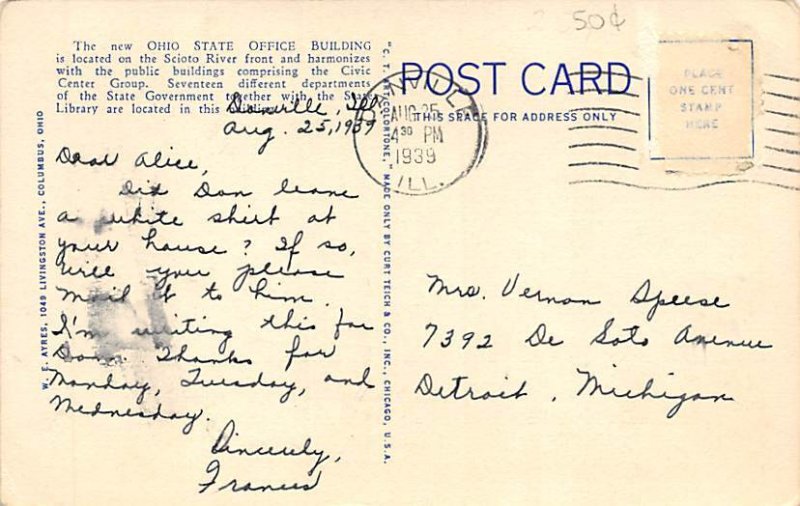 The new OHIO STATE OFFICE BUILDING
is located on the Scioto River front and harmonizes
with the public buildings comprising the Civic
Center Group. Seventeen different departments
of the State Government together with the State
Library are located in this building.
Danville, Ill.
Aug. 25, 1939
Dear Alice,
Did Don leave
a white shirt at
your house? If so,
will you please
mail it to him.
I'm writing this for
Donn. Thanks for
Monday, Tuesday, and
Wednesday.
Sincerely,
Frances
W. E. AYRES, 1049 LIVINGSTON AVE., COLUMBUS, OHIO
"C. T. ART-COLORTONE," MADE ONLY BY CURT TEICH & CO., INC., CHICAGO, U.S.A.
POST CARD
THIS SPACE FOR ADDRESS ONLY
DANVILLE
AUG 25
4 30 PM
1939
ILL.
50¢
PLACE
ONE CENT
STAMP
HERE
Mrs. Vernon Speese
7392 De Soto Avenue
Detroit, Michigan